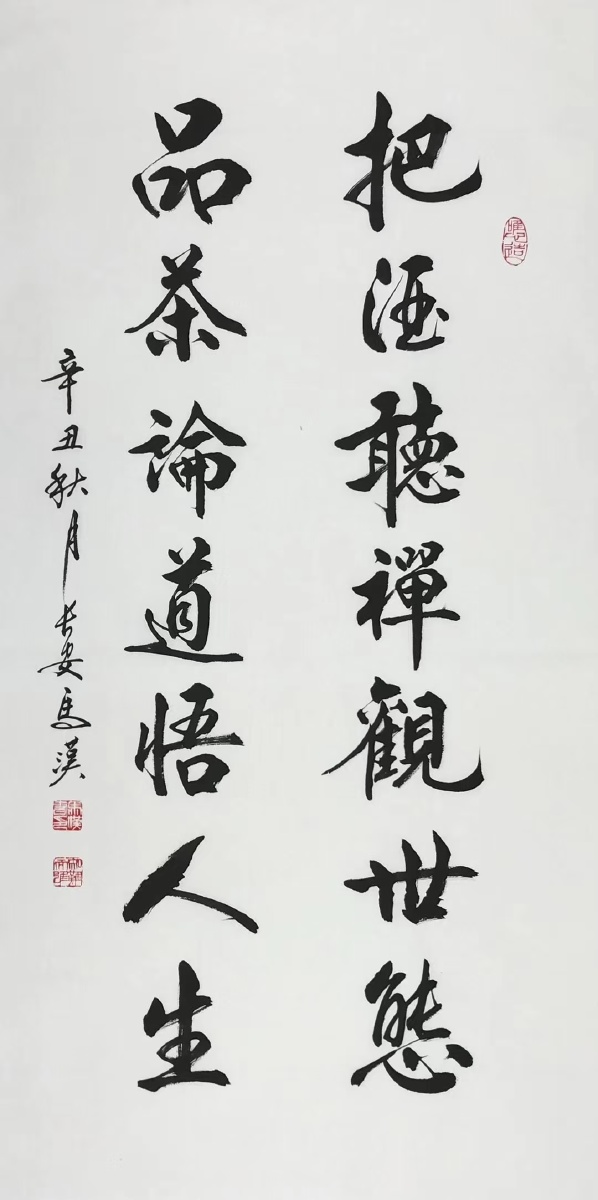 把酒聽禪觀世態
品茶論道悟人生
辛丑秋月長安馬漢